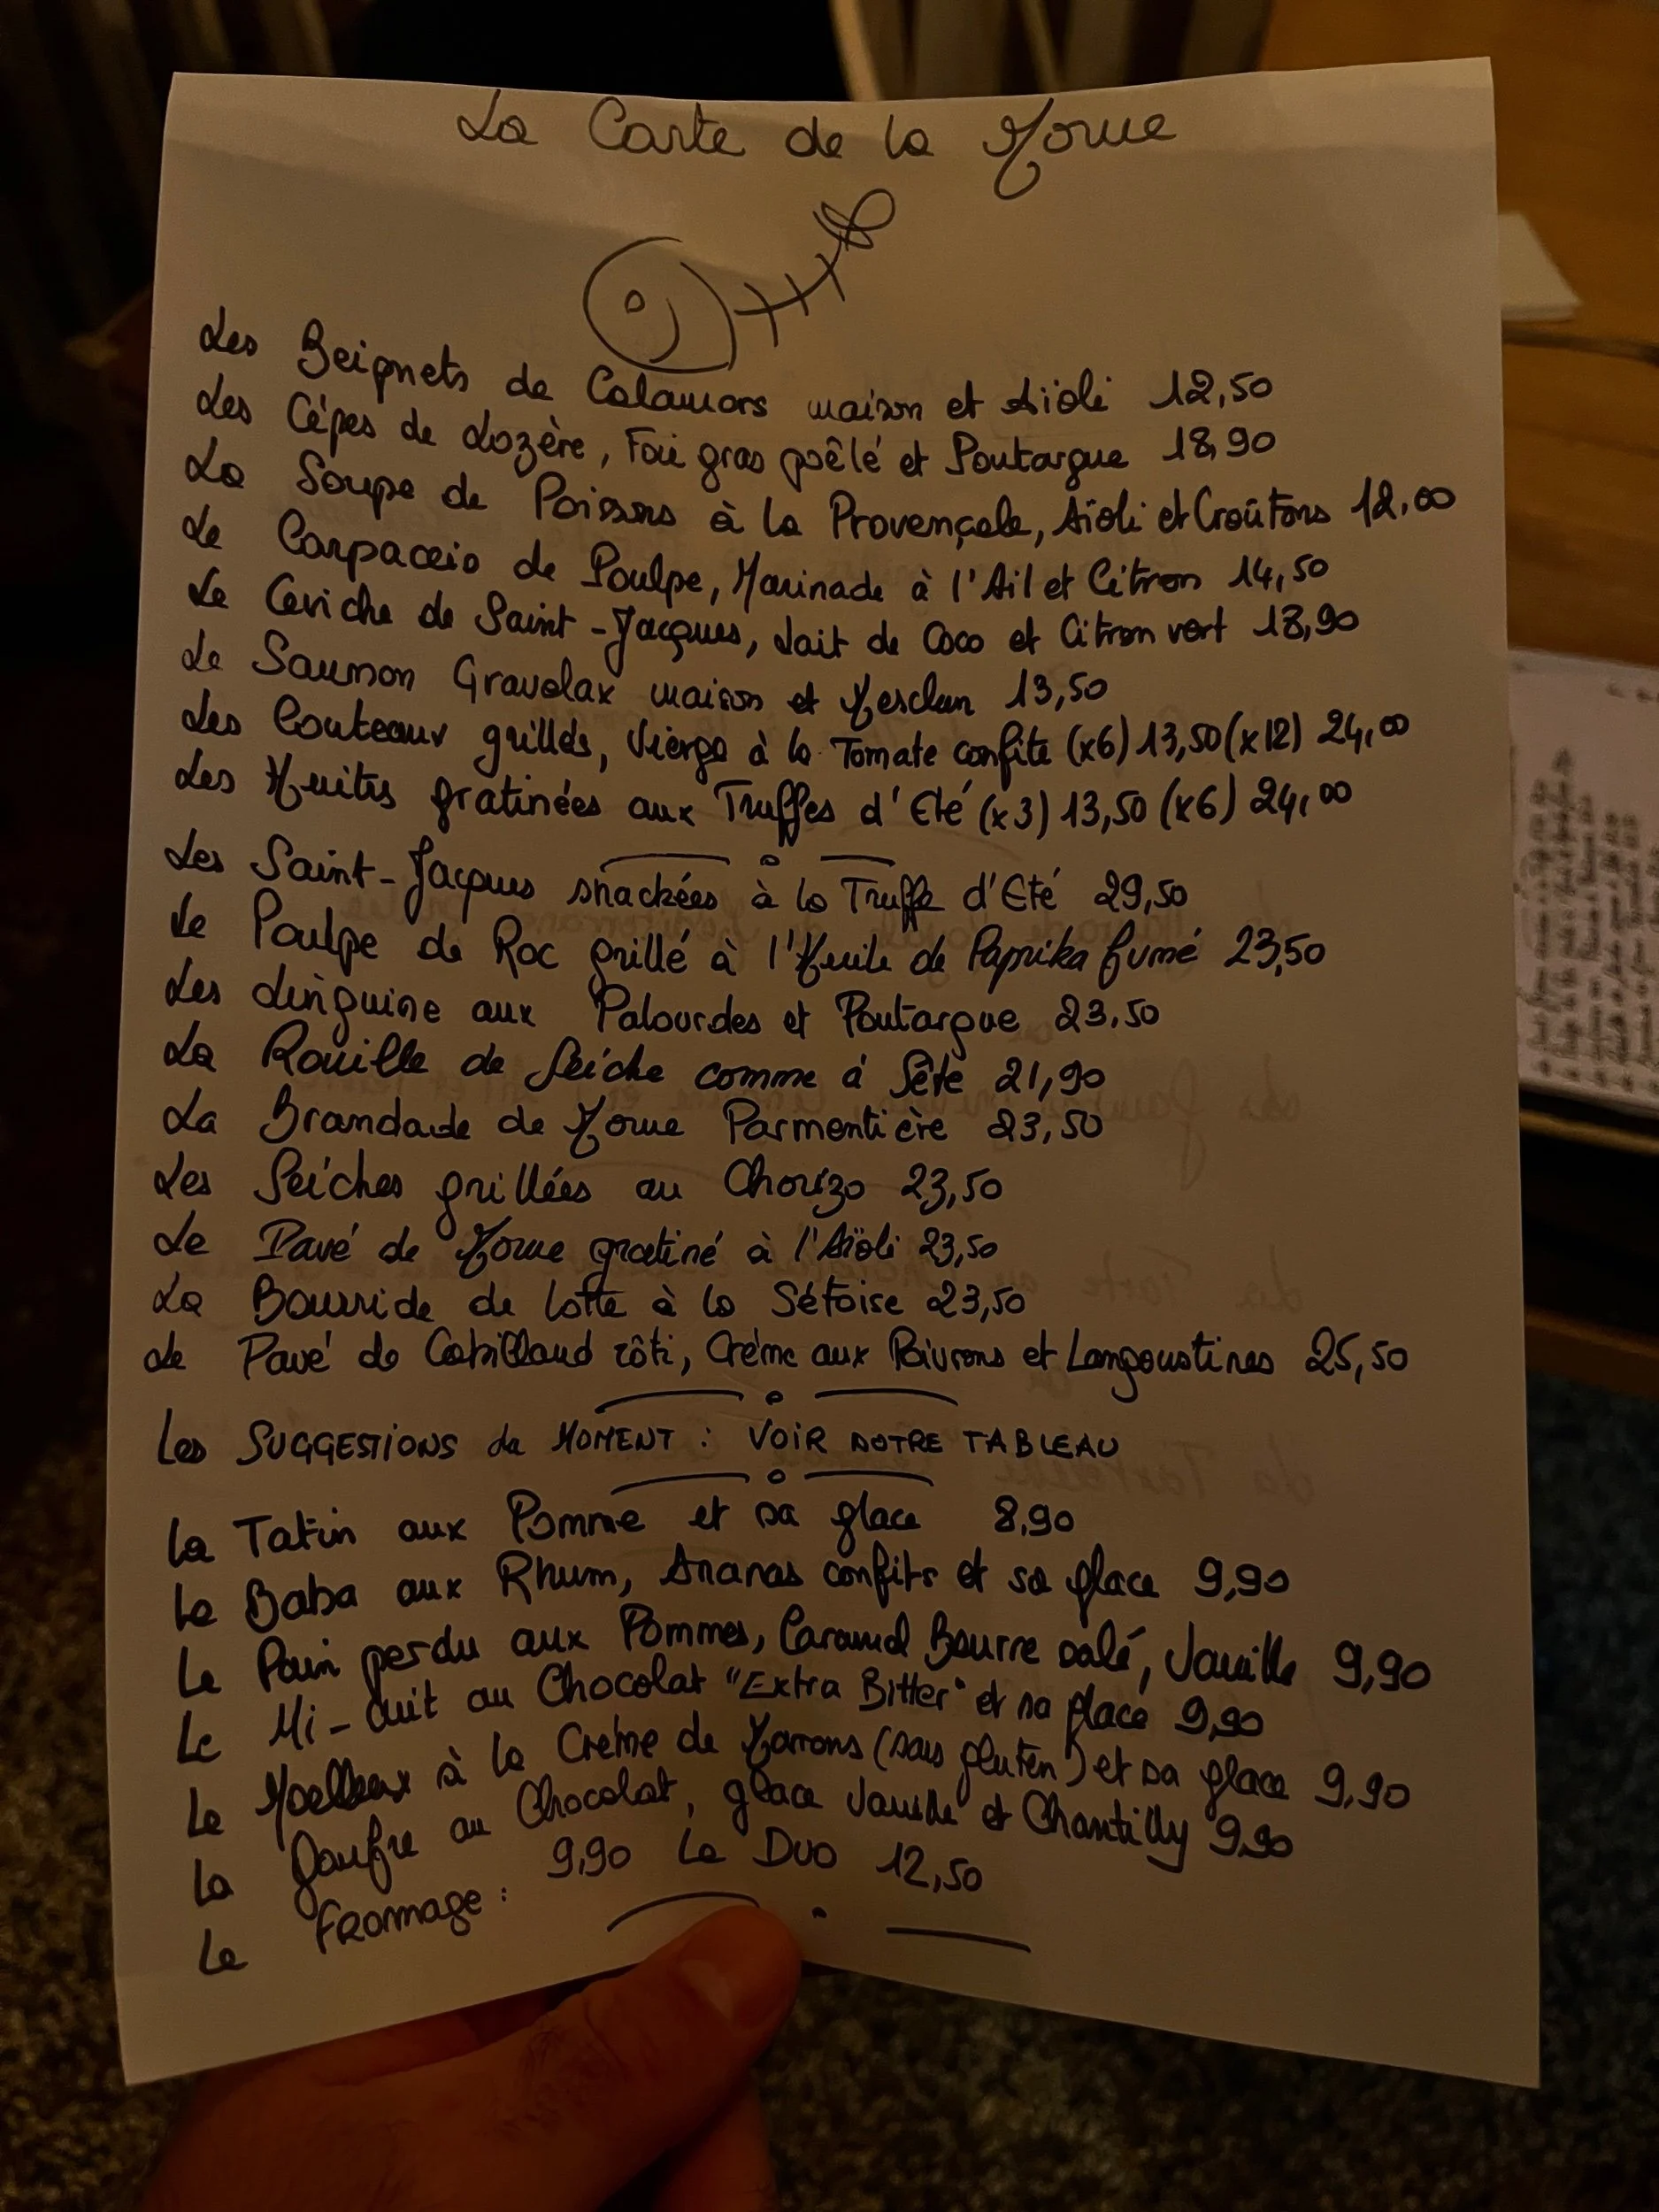 La Carte de la Morue
Les Beignets de Calamars maison et Aïoli 12,50
Les Cèpes de Lozère, Foie gras poêlé et Poutargue 18,90
La Soupe de Poissons à la Provençale, Aïoli et Croûtons 12,00
Le Carpaccio de Poulpe, Marinade à l'Ail et Citron 14,50
Le Ceviche de Saint-Jacques, Lait de Coco et Citron vert 18,90
Le Saumon Gravelax maison et Mesclun 13,50
Les Couteaux grillés, Vierge à la Tomate confite (x6) 13,50 (x12) 24,00
Les Huitres gratinées aux Truffes d'Eté (x3) 13,50 (x6) 24,00
Les Saint-Jacques snackées à la Truffe d'Eté 29,50
Le Poulpe de Roc grillé à l'Huile de Paprika fumé 23,50
Les Linguine aux Palourdes et Poutargue 23,50
La Rouille de Seiche comme à Sète 21,90
La Brandade de Morue Parmentière 23,50
Les Seiches grillées au Chorizo 23,50
Le Pavé de Morue gratiné à l'Aïoli 23,50
La Bourride de Lotte à la Sétoise 23,50
Le Pavé de Cabillaud rôti, Crème aux Poivrons et Langoustines 25,50
Les SUGGESTIONS du MOMENT : VOIR NOTRE TABLEAU
La Tatin aux Pomme et sa glace 8,90
Le Baba aux Rhum, Ananas confits et sa glace 9,90
Le Pain perdu aux Pommes, Caramel Beurre salé, Vanille 9,90
Le Mi-cuit au Chocolat "Extra Bitter" et sa glace 9,90
Le Moelleux à la Crème de Marrons (sans gluten) et sa glace 9,90
La Gaufre au Chocolat, glace Vanille et Chantilly 9,90
Le Fromage : 9,90 Le Duo 12,50